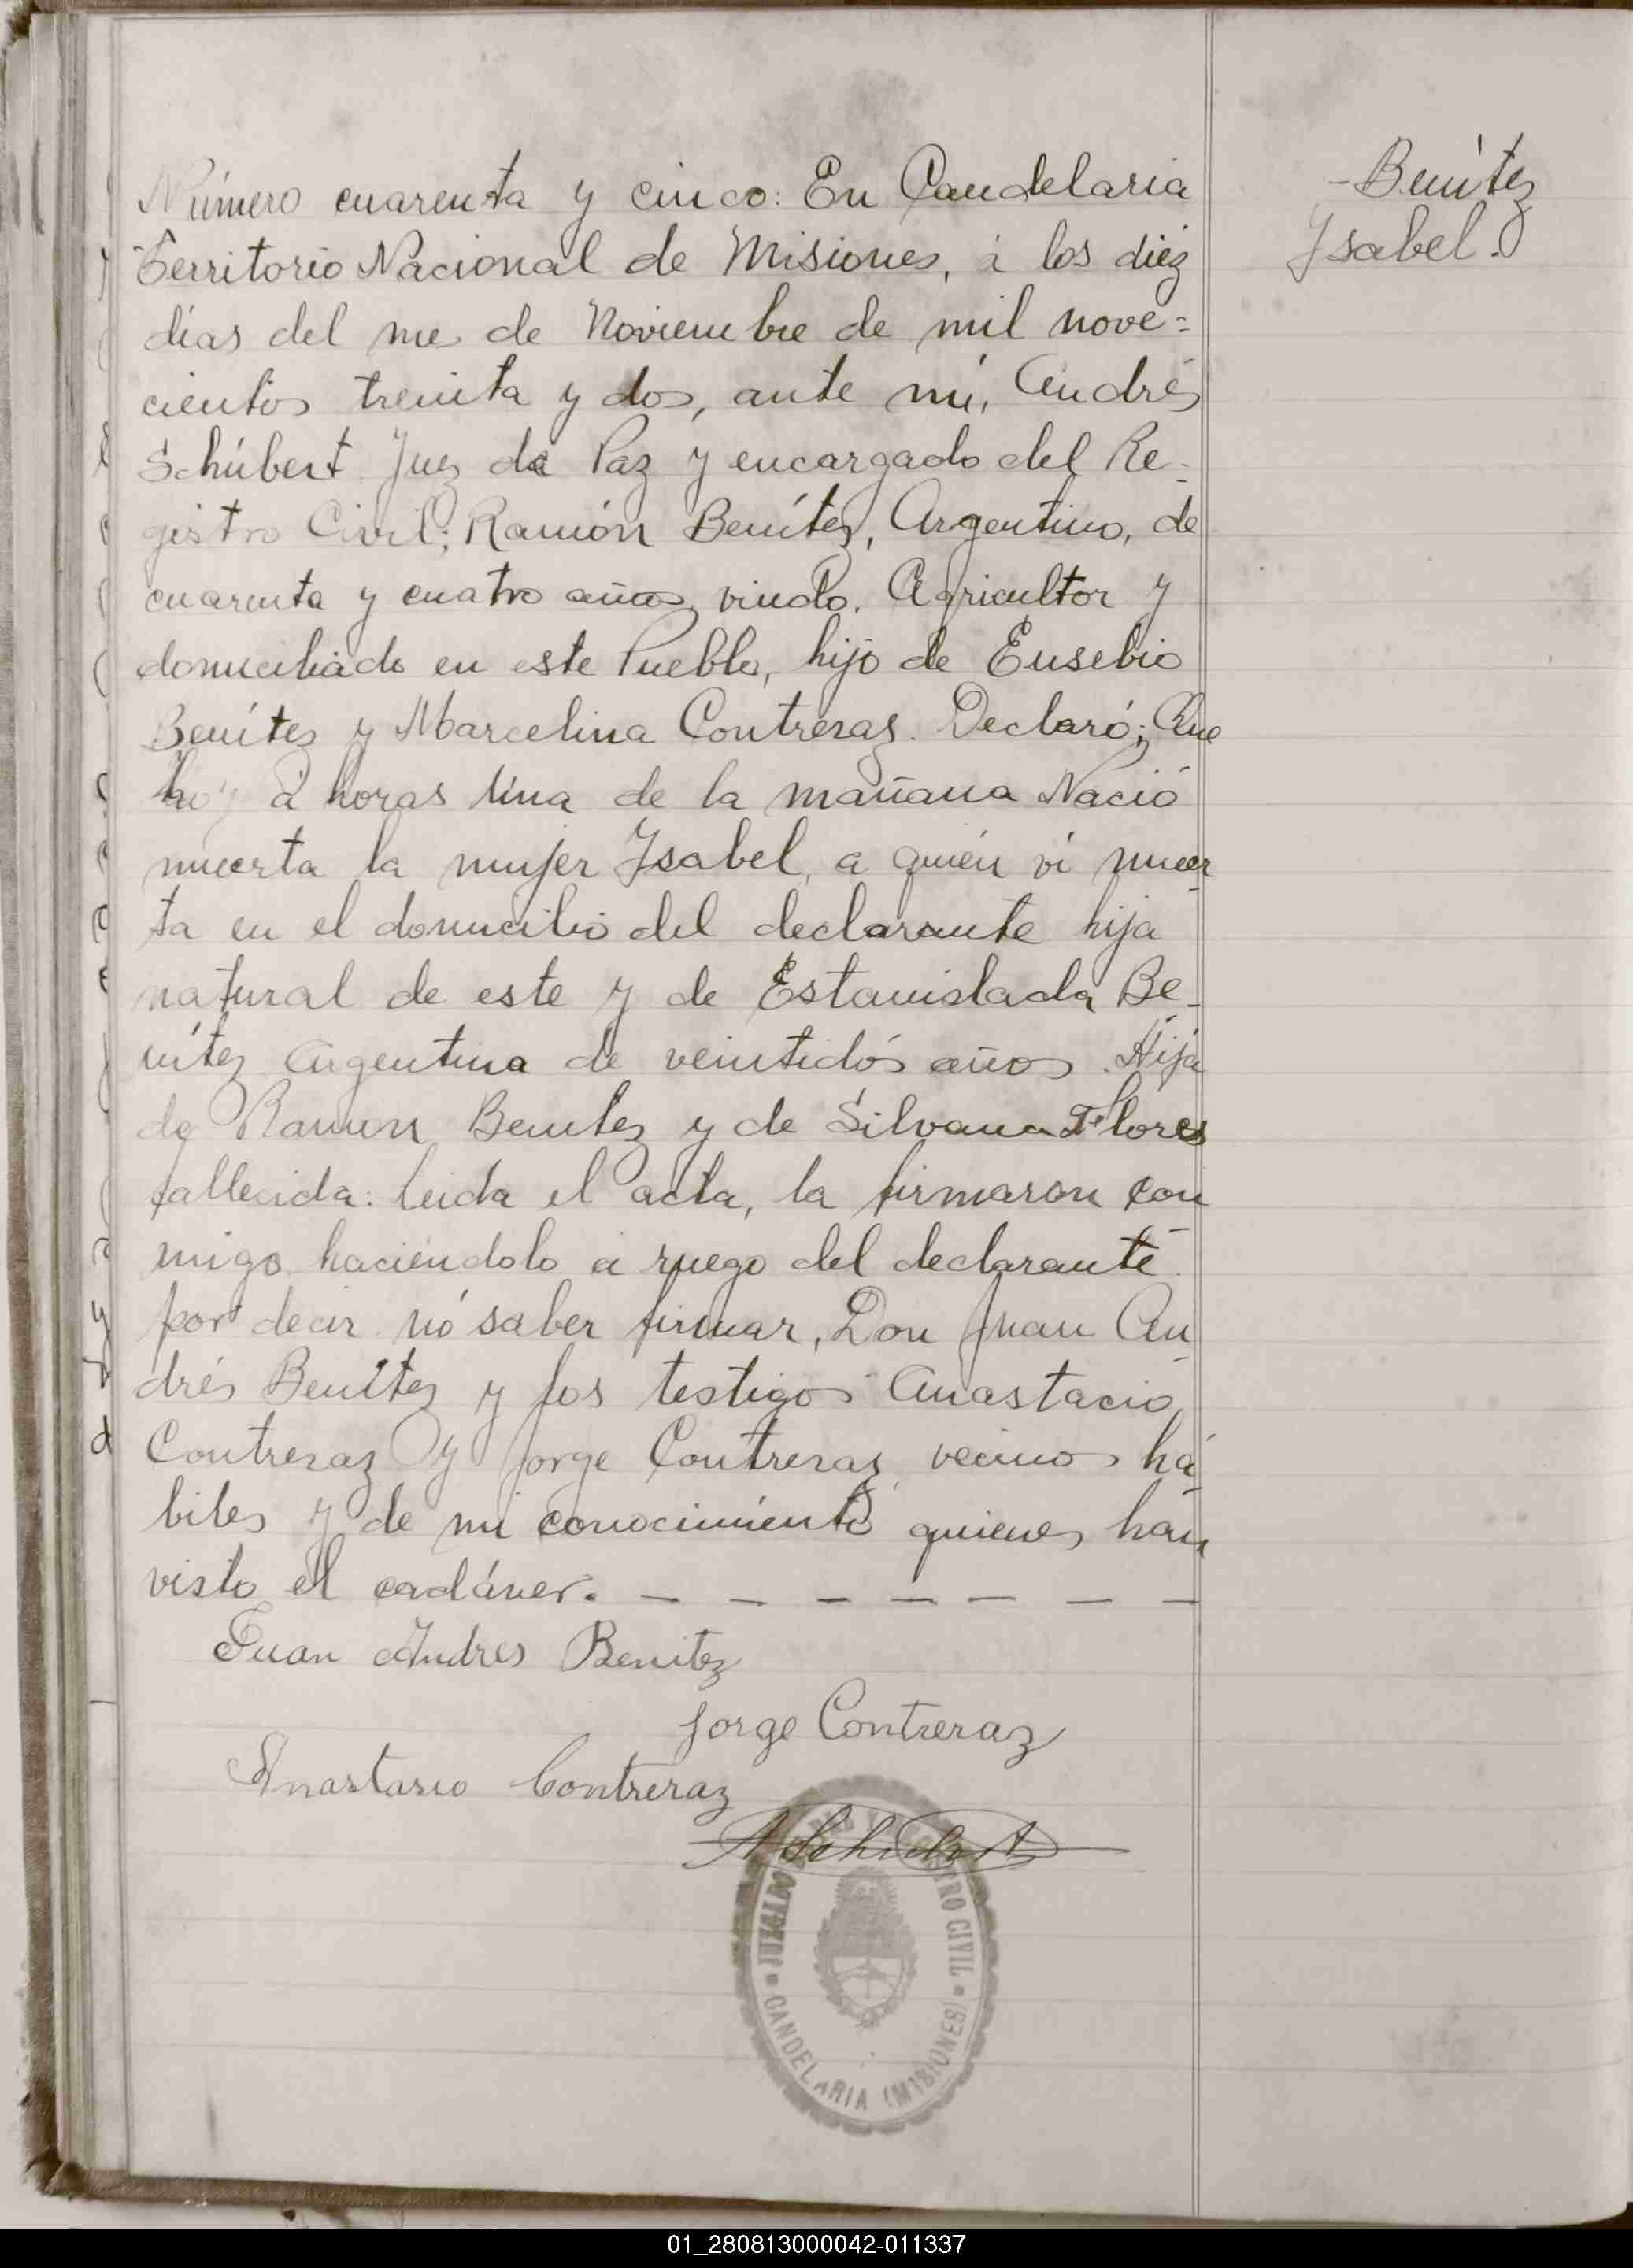 Número cuarenta y cinco: En Candelaria
Territorio Nacional de Misiones, á los diéz
días del me de Noviembre de mil nove=
cientos treinta y dos, ante mí, Andrés
Schúbert Juez de Paz y encargado del Re-
gistro Civil; Ramón Benítez, Argentino, de
cuarenta y cuatro años, viudo. Agricultor y
domiciliado en este Pueblo, hijo de Eusebio
Benítez y Marcelina Contreraz. Declaró; Que
hoy á horas úna de la mañana Nació
muerta la mujer Ysabel, a quién ví muer-
ta en el domicilio del declarante hija
natural de este y de Estanislada Be-
nítez Argentina de veintidós años. Hija
de Ramon Benitez y de Silvana Flores
fallecida: leida el acta, la firmaron con
migo haciéndolo a ruego del declarante
por decir nó saber firmar, Don Juan An-
drés Benítez y los testigos Anastacio
Contreraz y Jorge Contreraz vecinos há-
biles y de mi conocimiento quienes hán
visto el cadáver. — — — — — — —
Juan Andres Benitez
Jorge Contreraz
Anastasio Contreraz
A Schubert
JUZGADO DE PAZ Y REGISTRO CIVIL
CANDELARIA (MISIONES)
- Benítez
Ysabel.
01_280813000042-011337